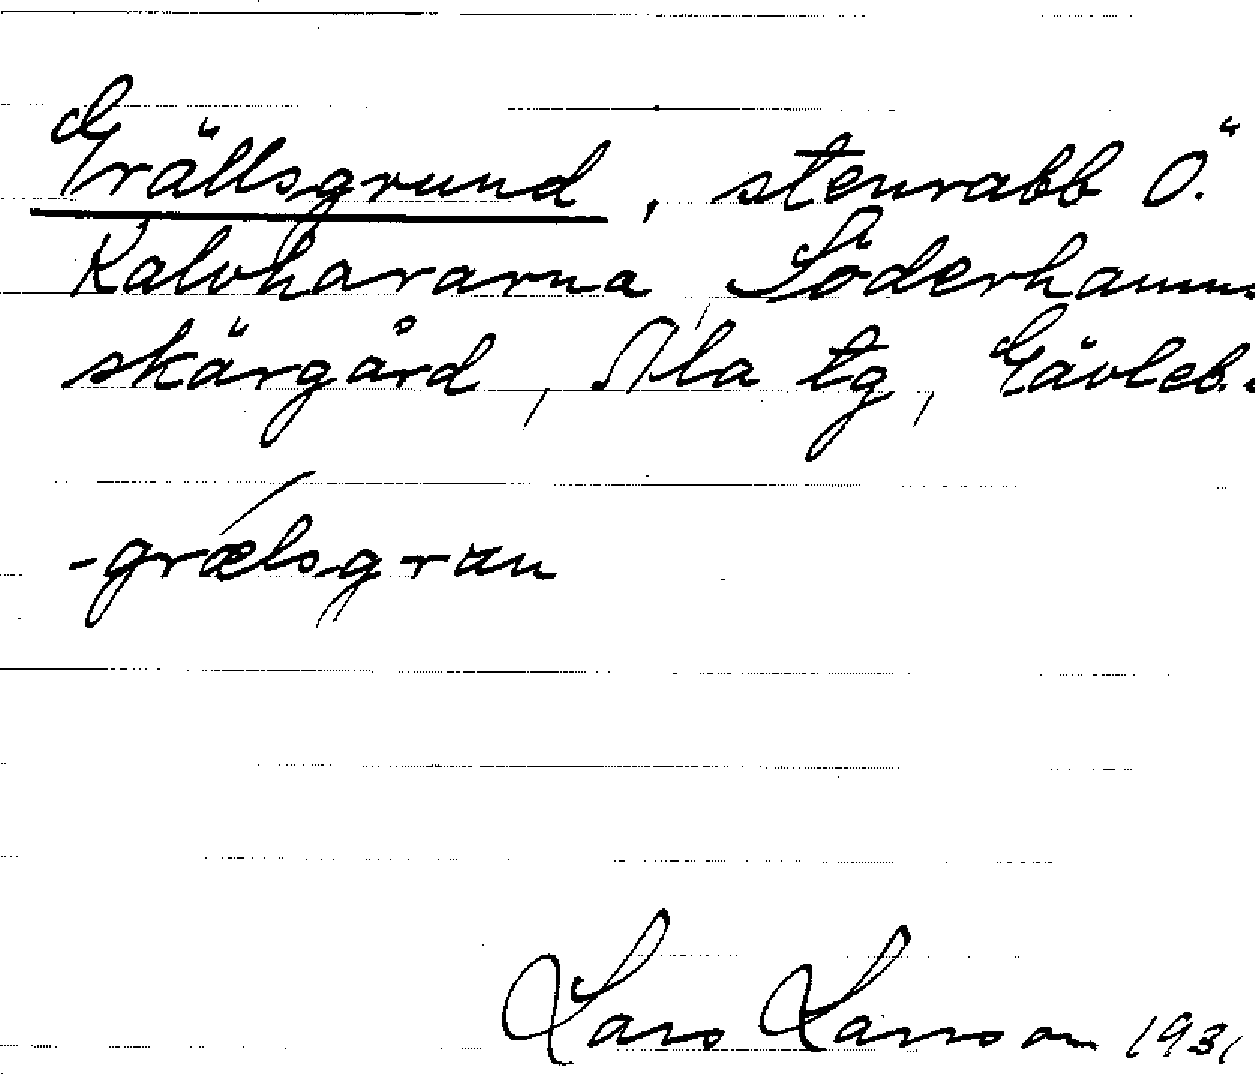 Grällsgrund, stenrabb Ö.
Kalvhararna, Söderhamns
skärgård, Ala tg, Gävleb.
-grælsgrun
Lars Larsson 1931